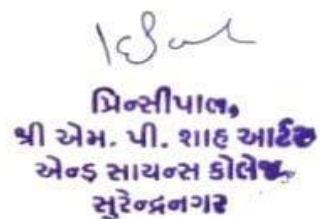 પ્રિન્સીપાલ,
શ્રી એમ. પી. શાહ આર્ટસ
એન્ડ સાયન્સ કોલેજ,
સુરેન્દ્રનગર